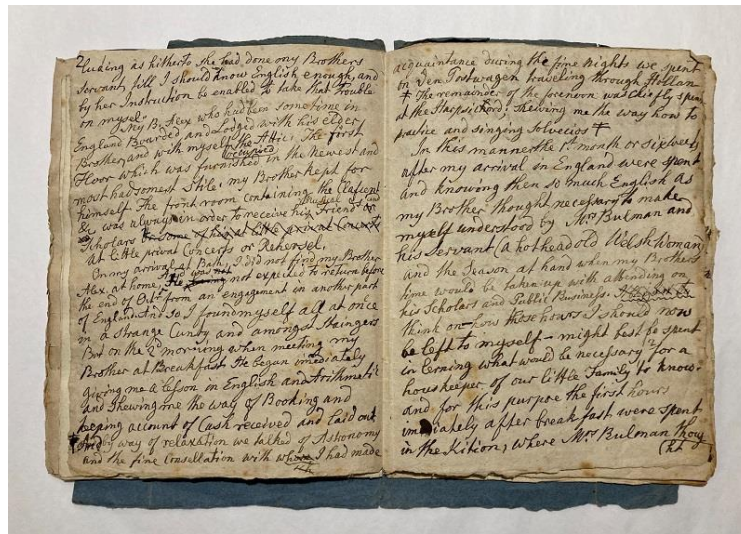 2
luding as hitherto she had done my Brothers
servant, till I should know English enough, and
by her Instruction be enabled to take that trouble
on myself.
My B. Alex who had been some time in
England Boarded and Lodged with his elder
Brother, and with myself the Attic. The first
occupied
Floor which was furnished in the Newest and
most handsomest Stile; my Brother kept for
himself. The front room containing the
&c was always in order to receive his Friends and
Scholars
at Little privat Concerts or Rehersel.
On my arrival at Bath, I did not find my Brother
Alex. at home, He was not expected to return before
the end of Octr. from an engagement in another part
of England. And so I found myself all at once
in a strange Cuntry and amongst Straingers
But on the 2d morning when meeting my
Brother at Breakfast. He began imediately
giving me a lesson in English and Arithmetic
and shewing me the way of Booking and
keeping account of Cash received and laid out
by way of relaxation we talked of Astronomy
and the fine Consellation with I had made
acquaintance during the fine nights we spent
on Den Postwagen traveling through Hollan
‡ The remainder of the forenoon was chiefly spen
at the Harpsichord; shewing me the way how to
practice and singing Solvecios ‡
In this manner the 1st month or six weeks
after my arrival in England were spent
and knowing then so much English as
my Brother thought necessary to make
myself understood by Mrs Bulman and
his Servant (a hotheaded old Welsh Woman)
and the Season at hand when my Brothers
time would be taken up with attending on
his Scholars and Public Business.
think on how those hours I should now
be left to myself - might best be spent
in lerning what would be necessary for a
houskeeper of our little Family to know.
and for this purpose the first hours
immediately after breakfast were spent
in the Kition, where Mrs Bulman